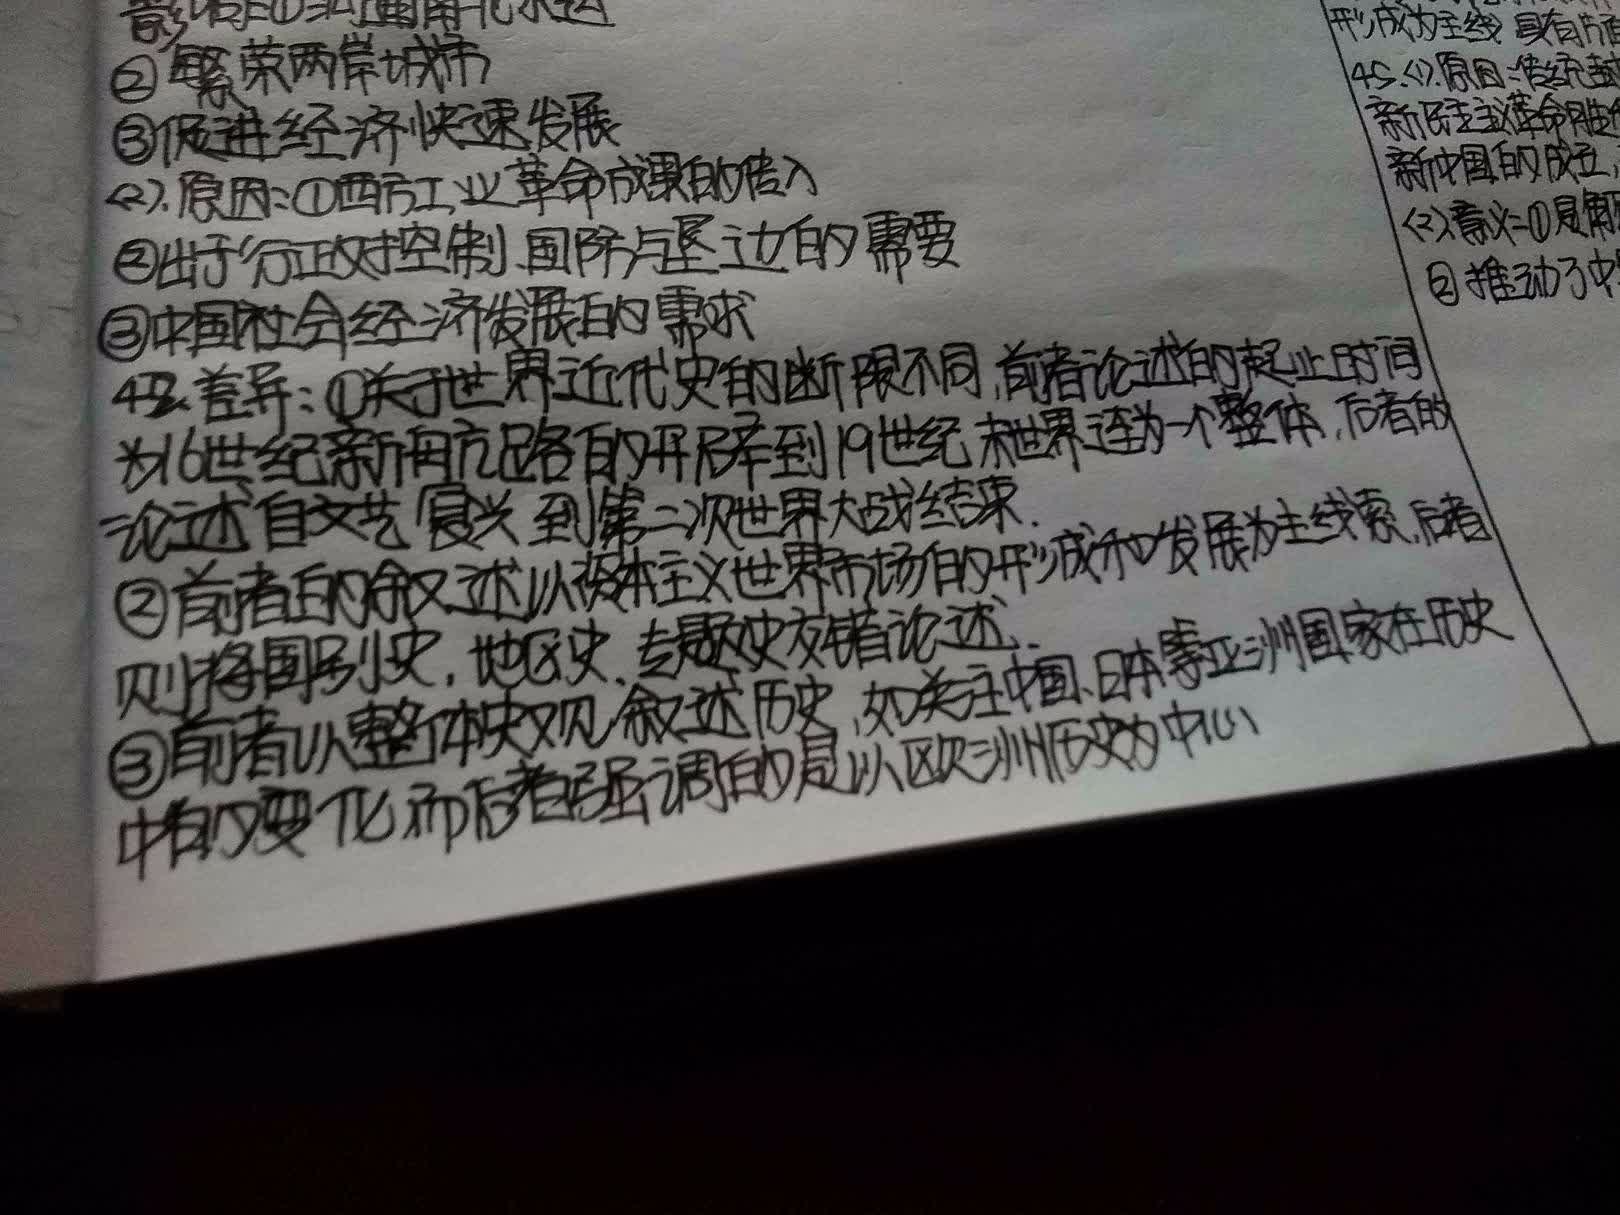 ②繁荣两岸城市
③促进经济快速发展
<2>.原因:①西方工业革命成果的传入
②出于行政对控制、国防与垦边的需要
③中国社会经济发展的需求
42.差异:①关于世界近代史的断限不同,前者论述的起止时间
为16世纪新航路的开辟到19世纪末世界连为一个整体,后者的
论述自文艺复兴到第二次世界大战结束.
②前者的叙述以资本主义世界市场的形成和发展为主线索,后者
则将国别史,地区史、专题史交错论述.
③前者以整体史观叙述历史,如关注中国、日本等亚洲国家在历史
中的变化,而后者强调的是以欧洲历史为中心
形成为主线 具有
45.<1>.原因:传统
新民主主义革命胜
新中国的成立,
<2>意义:①是
②推动了中